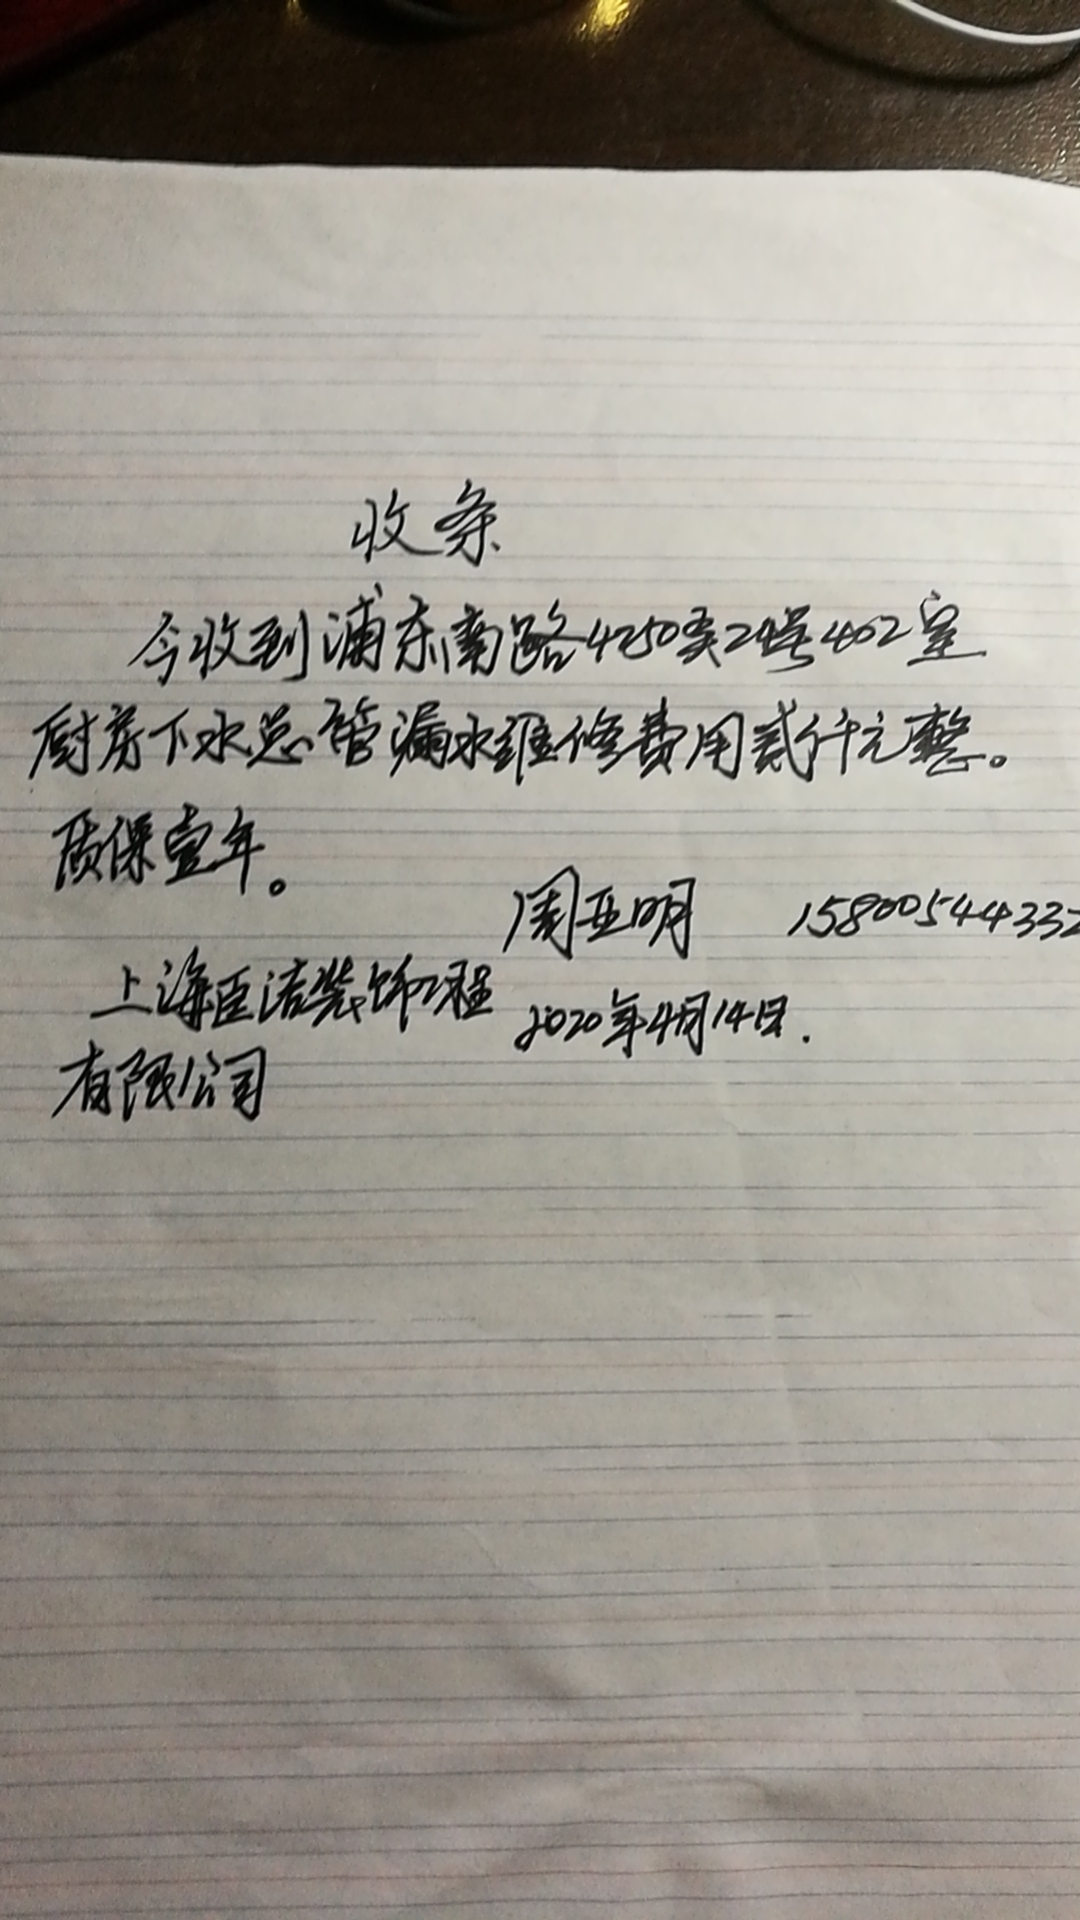 收条
今收到浦东南路4250弄24号402室
厨房下水总管漏水维修费用贰仟元整。
质保壹年。
周亚明 15800544332
上海臣洁装饰工程 2020年4月14日.
有限公司